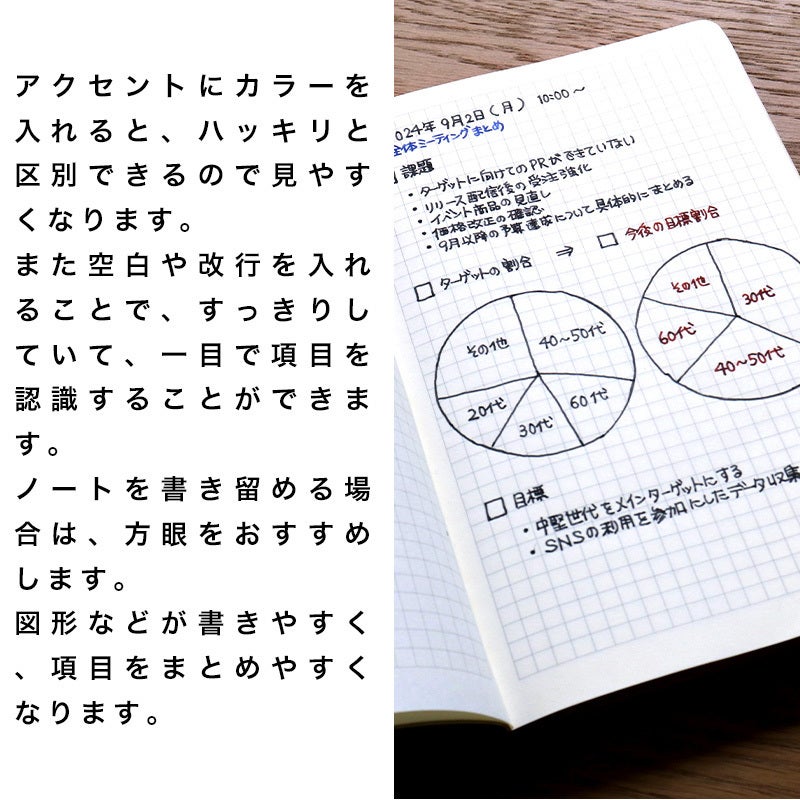 アクセントにカラーを
入れると、ハッキリと
区別できるので見やす
くなります。
また空白や改行を入れ
ることで、すっきりし
ていて、一目で項目を
認識することができま
す。
ノートを書き留める場
合は、方眼をおすすめ
します。
図形などが書きやすく
、項目をまとめやすく
なります。
024年 9月2日(月) 10:00〜
全体ミーティングまとめ
課題
・ターゲットに向けてのPRができていない
・リリース配信後の受注強化
・イベント商品の見直し
・価格改正の確認
・9月以降の予算達成について具体的にまとめる
ターゲットの割合 ⇒ 今後の目標割合
その他
40〜50代
20代
30代
60代
その他
30代
60代
40〜50代
目標
・中堅世代をメインターゲットにする
・SNSの利用を参加にしたデータ収集